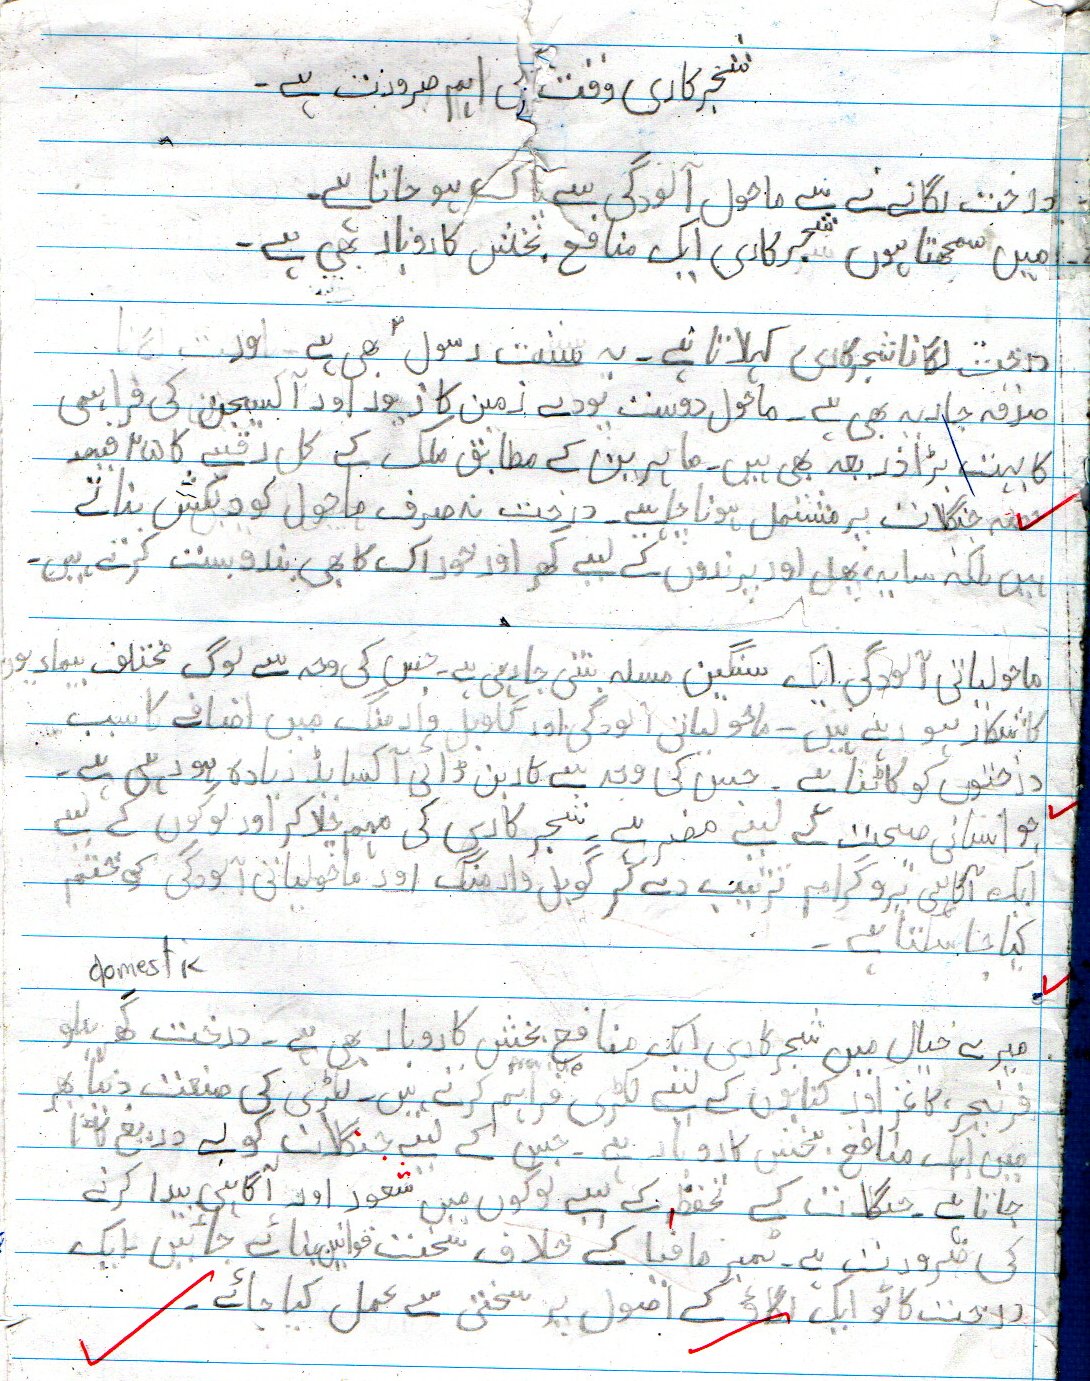 شجرکاری وقت کی اہم ضرورت ہے۔
درخت لگانے سے ماحول آلودگی سے پاک ہو جاتا ہے۔
میں سمجھتا ہوں شجرکاری ایک منافع بخش کاروبار بھی ہے۔
درخت لگانا شجرکاری کہلاتا ہے۔ یہ سنت رسولؐ بھی ہے۔ اور
صدقہ جاریہ بھی ہے۔ ماحول دوست پودے زمین کا زیور اور آکسیجن کی فراہمی
کا بہت بڑا ذریعہ بھی ہیں۔ ماہرین کے مطابق ملک کے کل رقبے کا ۲۵ فیصد
حصہ جنگلات پر مشتمل ہونا چاہیے۔ درخت نہ صرف ماحول کو دلکش بناتے
ہیں بلکہ سایہ، پھل اور پرندوں کے لیے گھر اور خوراک کا بھی بندوبست کرتے ہیں۔
ماحولیاتی آلودگی ایک سنگین مسلہ بنتی جارہی ہے۔ جس کی وجہ سے لوگ مختلف بیماریوں
کا شکار ہو رہے ہیں۔ ماحولیاتی آلودگی اور گلوبل وارمنگ میں اضافے کا سبب
درختوں کو کاٹنا ہے۔ جس کی وجہ سے کاربن ڈائی آکسایڈ زیادہ ہو رہی ہے۔
جو انسانی صحت کے لیے مضر ہے۔ شجرکاری کی مہم چلا کر اور لوگوں کے لیے
ایک آگاہی پروگرام ترتیب دے کر گلوبل وارمنگ اور ماحولیاتی آلودگی کو ختم
کیا جا سکتا ہے۔
domestic
میرے خیال میں شجرکاری ایک منافع بخش کاروبار بھی ہے۔ درخت گھریلو
فرنیچر، کاغذ اور کتابوں کے لیے لکڑی فراہم کرتے ہیں۔ لکڑی کی صنعت دنیا بھر
میں ایک منافع بخش کاروبار ہے۔ جس کے لیے جنگلات کو بے دریغ کاٹا
جاتا ہے۔ جنگلات کے تحفظ کے لیے لوگوں میں شعور اور آگاہی پیدا کرنے
کی ضرورت ہے۔ ٹمبر مافیا کے خلاف سخت قوانین بنائے جائیں۔ ایک
درخت کاٹو ایک لگاؤ کے اصول پر سختی سے عمل کیا جائے۔